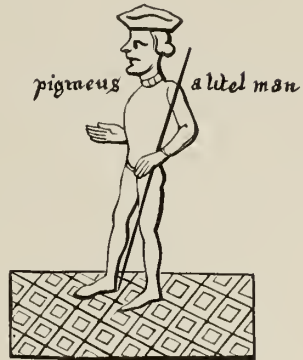 pigmeus a litel man